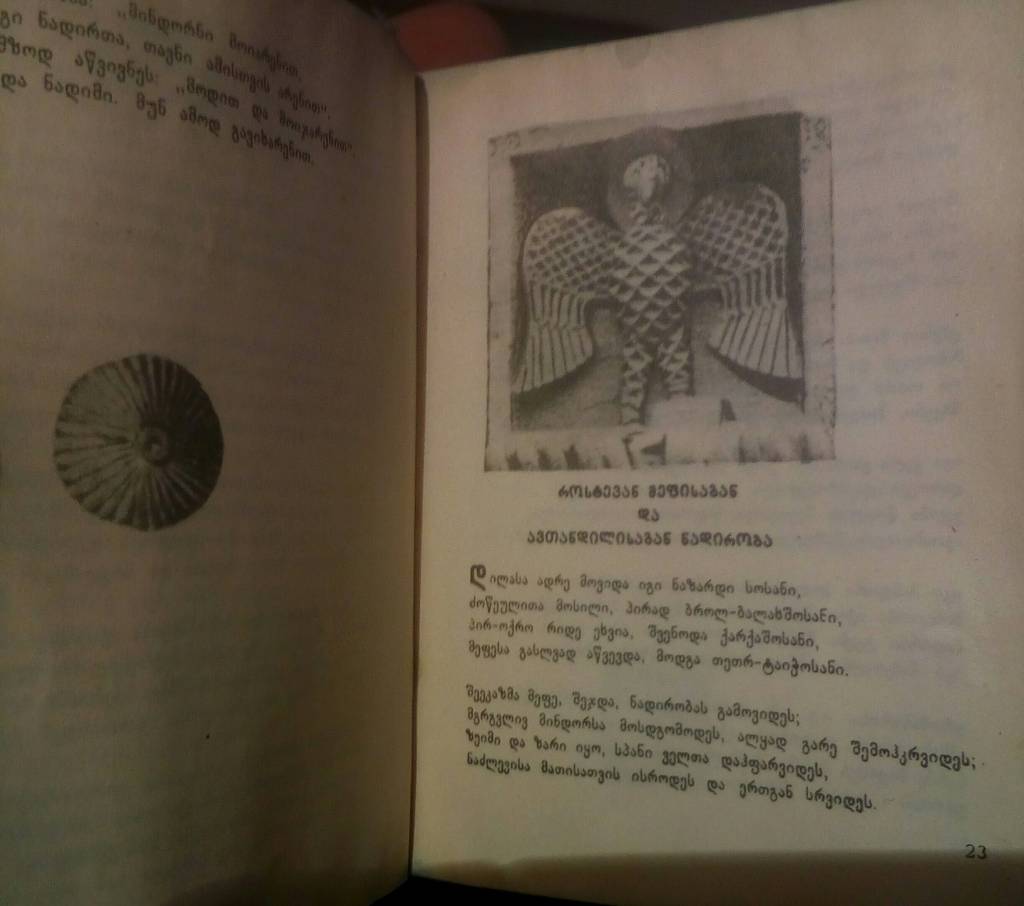 „მინდორნი მოიარენით,
გი ნადირთა, თავნი ამისთვის არენით“.
მზოდ აწვივნეს: „მოდით და მოიჯარენით“.
და ნადიმი. მუნ ამოდ გავიხარენით.
როსტევან მეფისაგან
და
ავთანდილისაგან ნადირობა
დილასა ადრე მოვიდა იგი ნაზარდი სოსანი,
ძოწეულითა მოსილი, პირად ბროლ-ბალახშოსანი,
პირ-ოქრო რიდე ეხვია, შვენოდა ქარქაშოსანი,
მეფესა გასლვად აწვევდა, მოდგა თეთრ-ტაიჭოსანი.
შეეკაზმა მეფე, შეჯდა, ნადირობას გამოვიდეს;
მგრგვლივ მინდორსა მოსდგომოდეს, ალყად გარე შემოჰკრვიდეს;
ზეიმი და ზარი იყო, სპანი ველთა დაჰფარვიდეს,
ნაძლევისა მათისათვის ისროდეს და ერთგან სრვიდეს.
23